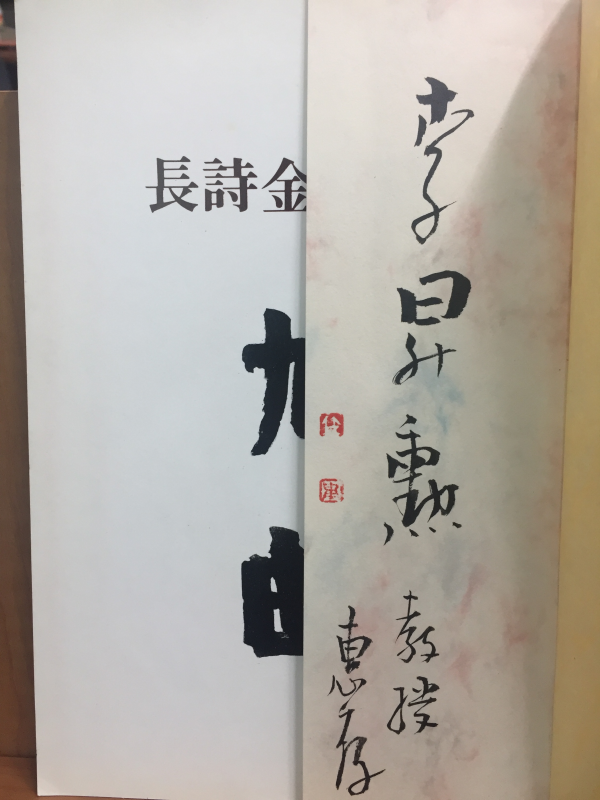 長詩金
九
曲
李昇勳
教授
惠存